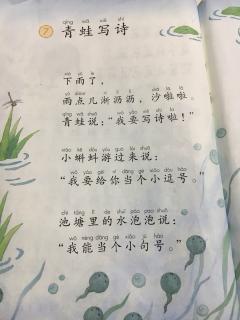 qīng wā xiě shī
7 青蛙写诗
xià yǔ le
下雨了，
yǔ diǎnr xī lì lì shā lā lā
雨点儿淅沥沥，沙啦啦。
qīng wā shuō wǒ yào xiě shī la
青蛙说：“我要写诗啦！”
xiǎo kē dǒu yóu guò lái shuō
小蝌蚪游过来说：
wǒ yào gěi nǐ dāng gè xiǎo dòu hào
“我要给你当个小逗号。”
chí táng lǐ de shuǐ pào pao shuō
池塘里的水泡泡说：
wǒ néng dāng gè xiǎo jù hào
“我能当个小句号。”